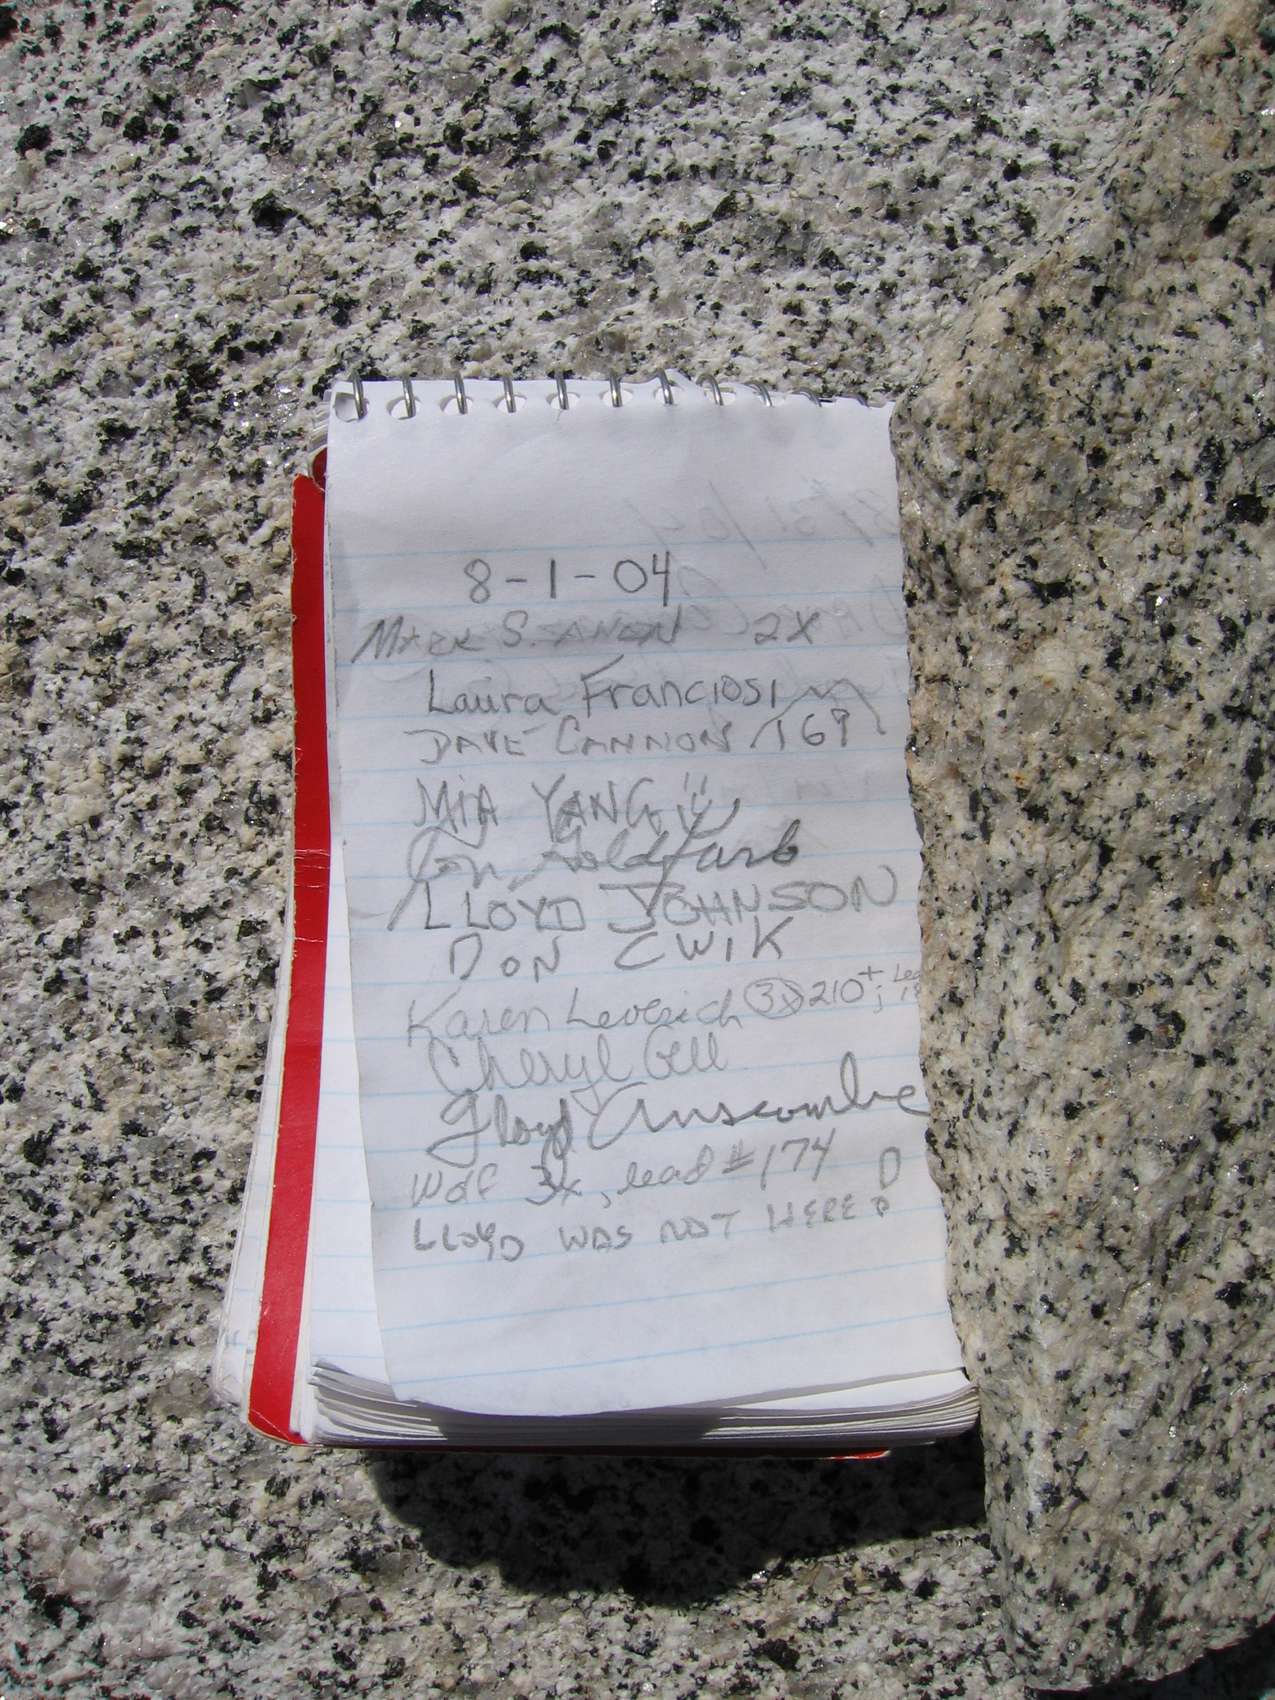 8-1-04
MARK S. 2X
Laura Franciosi
DAVE CANNON /169
MiA YANG
Jon Goldfarb
LLOYD JOHNSON
DON CWIK
Karen Leverich 3X 210+;
Cheryl Gill
Gloyd Anscombe
Wolf 3x, lead #174
LLOYD WAS NOT HERE